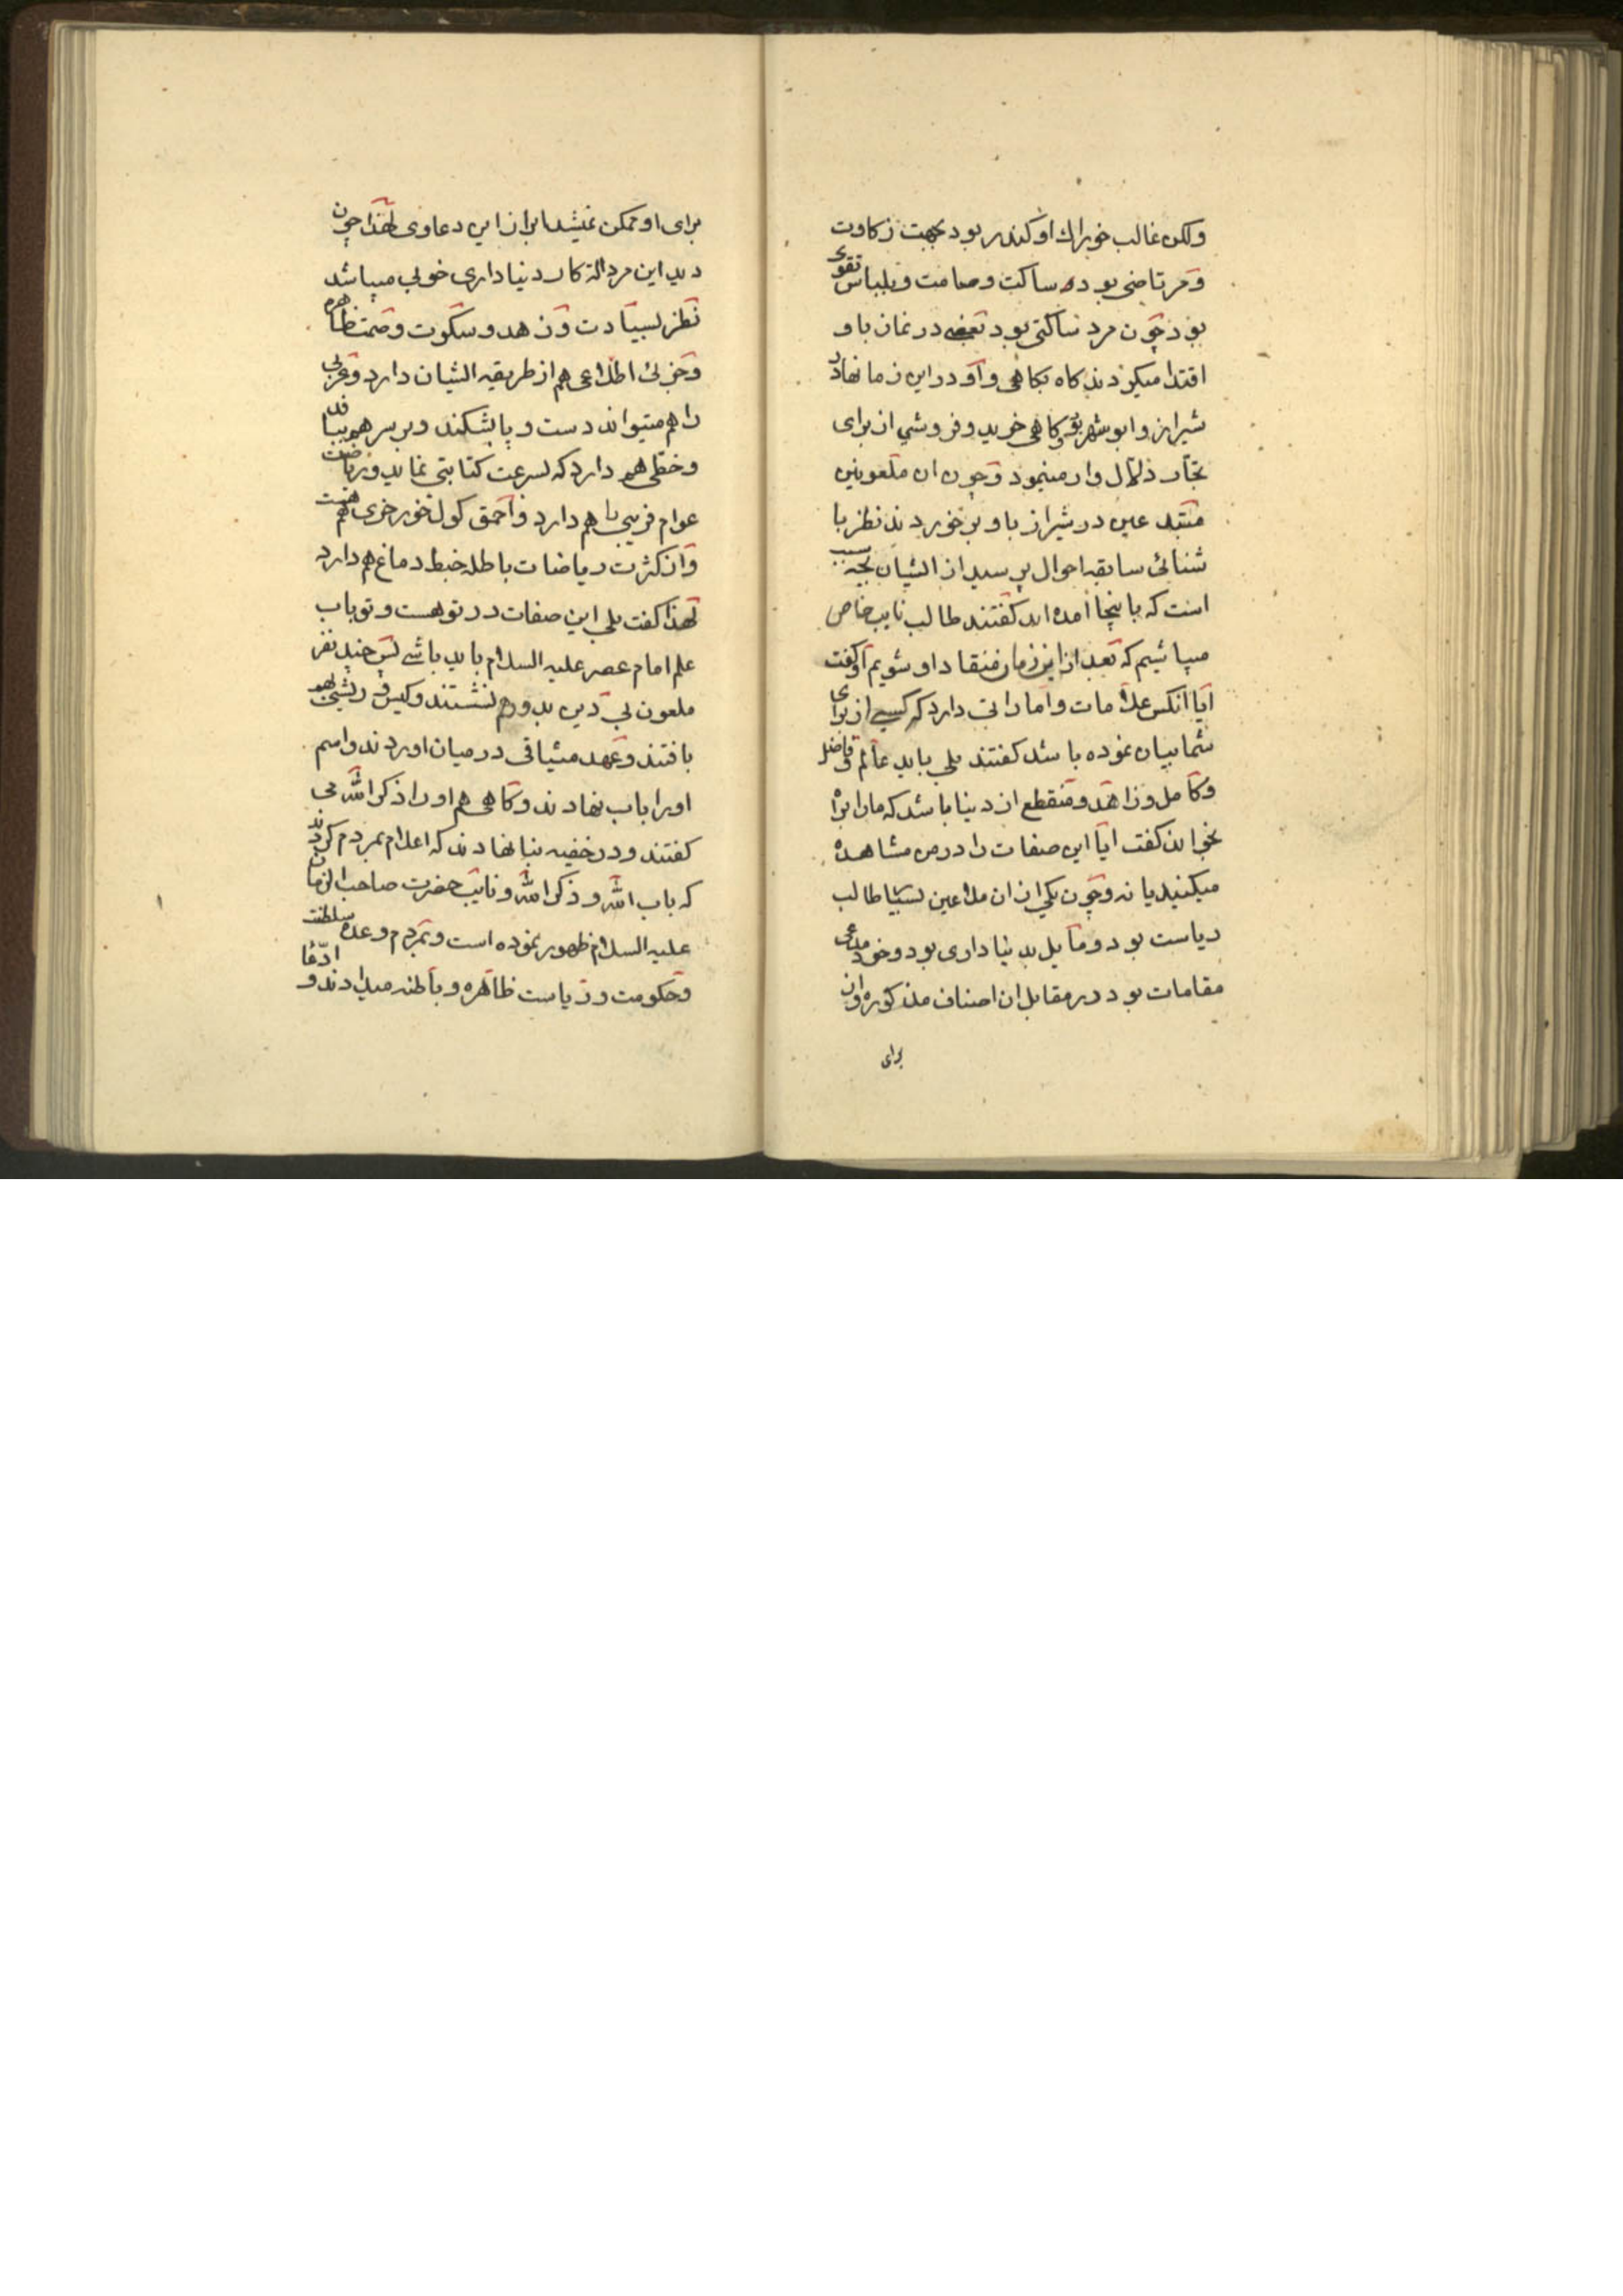 ولکن غالب خوراك او کندر بود بجهت زکاوت
و مرتاضی بوده ساکت و صامت و بلباس تقوی
بود چون مرد ساکتی بود بعضی در نماز باو
اقتدا میکردند کاه بکاهی و او در این زمانها در
شیراز و ابوشهر بود و کاهی خرید و فروشی از برای
تجار دلال وار مینمود و چون ان ملعونین
مبتدعین در شیراز باو برخوردند نظر با
شنائی سابقه احوال پرسید از ایشان بچه سبب
است که باینجا امده اید کفتند طالب نایب خاص
میباشیم که بعد از این زمان منقاد او شویم او کفت
ایا انکس علامات و اماراتی دارد که کسی از برای
شما بیان نموده باشد کفتند بلی باید عالم و فاضل
و کامل و زاهد و منقطع از دینا باشد که مارا براه
بخواند کفت ایا این صفات را در من مشاهده
میکنید یا نه و چون یکی از ان ملاعین بسیا طالب
ریاست بود و مایل بدنیاداری بود و خود مدعی
مقامات بود در مقابل ان اصناف مذکوره و ان
برای
برای او ممکن نمیشد ابراز این دعاوی لهذا چون
دید این مرد الة کار دنیاداری خوبی میباشد
نظر بسیادت و زهد و سکوت و صمت ظاهره
و جزئی اطلاعی هم از طریقه ایشان دارد و عربی
را هم میتواند دست و پا بشکند و بر سر هم ببافد
و خطی هم دارد که بسرعت کتابتی نماید و ریاضت
عوام فریبی را هم دارد و احمق کول خور خری هم هست
و از کثرت ریاضات باطله خبط دماغ هم دارد
لهذا کفت بلی این صفات در تو هست و تو باب
علم امام عصر علیه السلام باید باشی پس چند نفر
ملعون بی دین بدور هم نشستند و کیس و ریشی بهم
بافتند و عهد میثاقی در میان اوردند و اسم
اورا باب نهادند و کاهی هم اورا ذکر الله می
کفتند و در خفیه بنا نهادند که اعلام بمردم کردند
که باب الله و ذکر الله و نایب حضرت صاحب الزمان
علیه السلام ظهور نموده است و بمردم وعده سلطنت
و حکومت و ریاست ظاهره و باطنه میدادند و ادعا